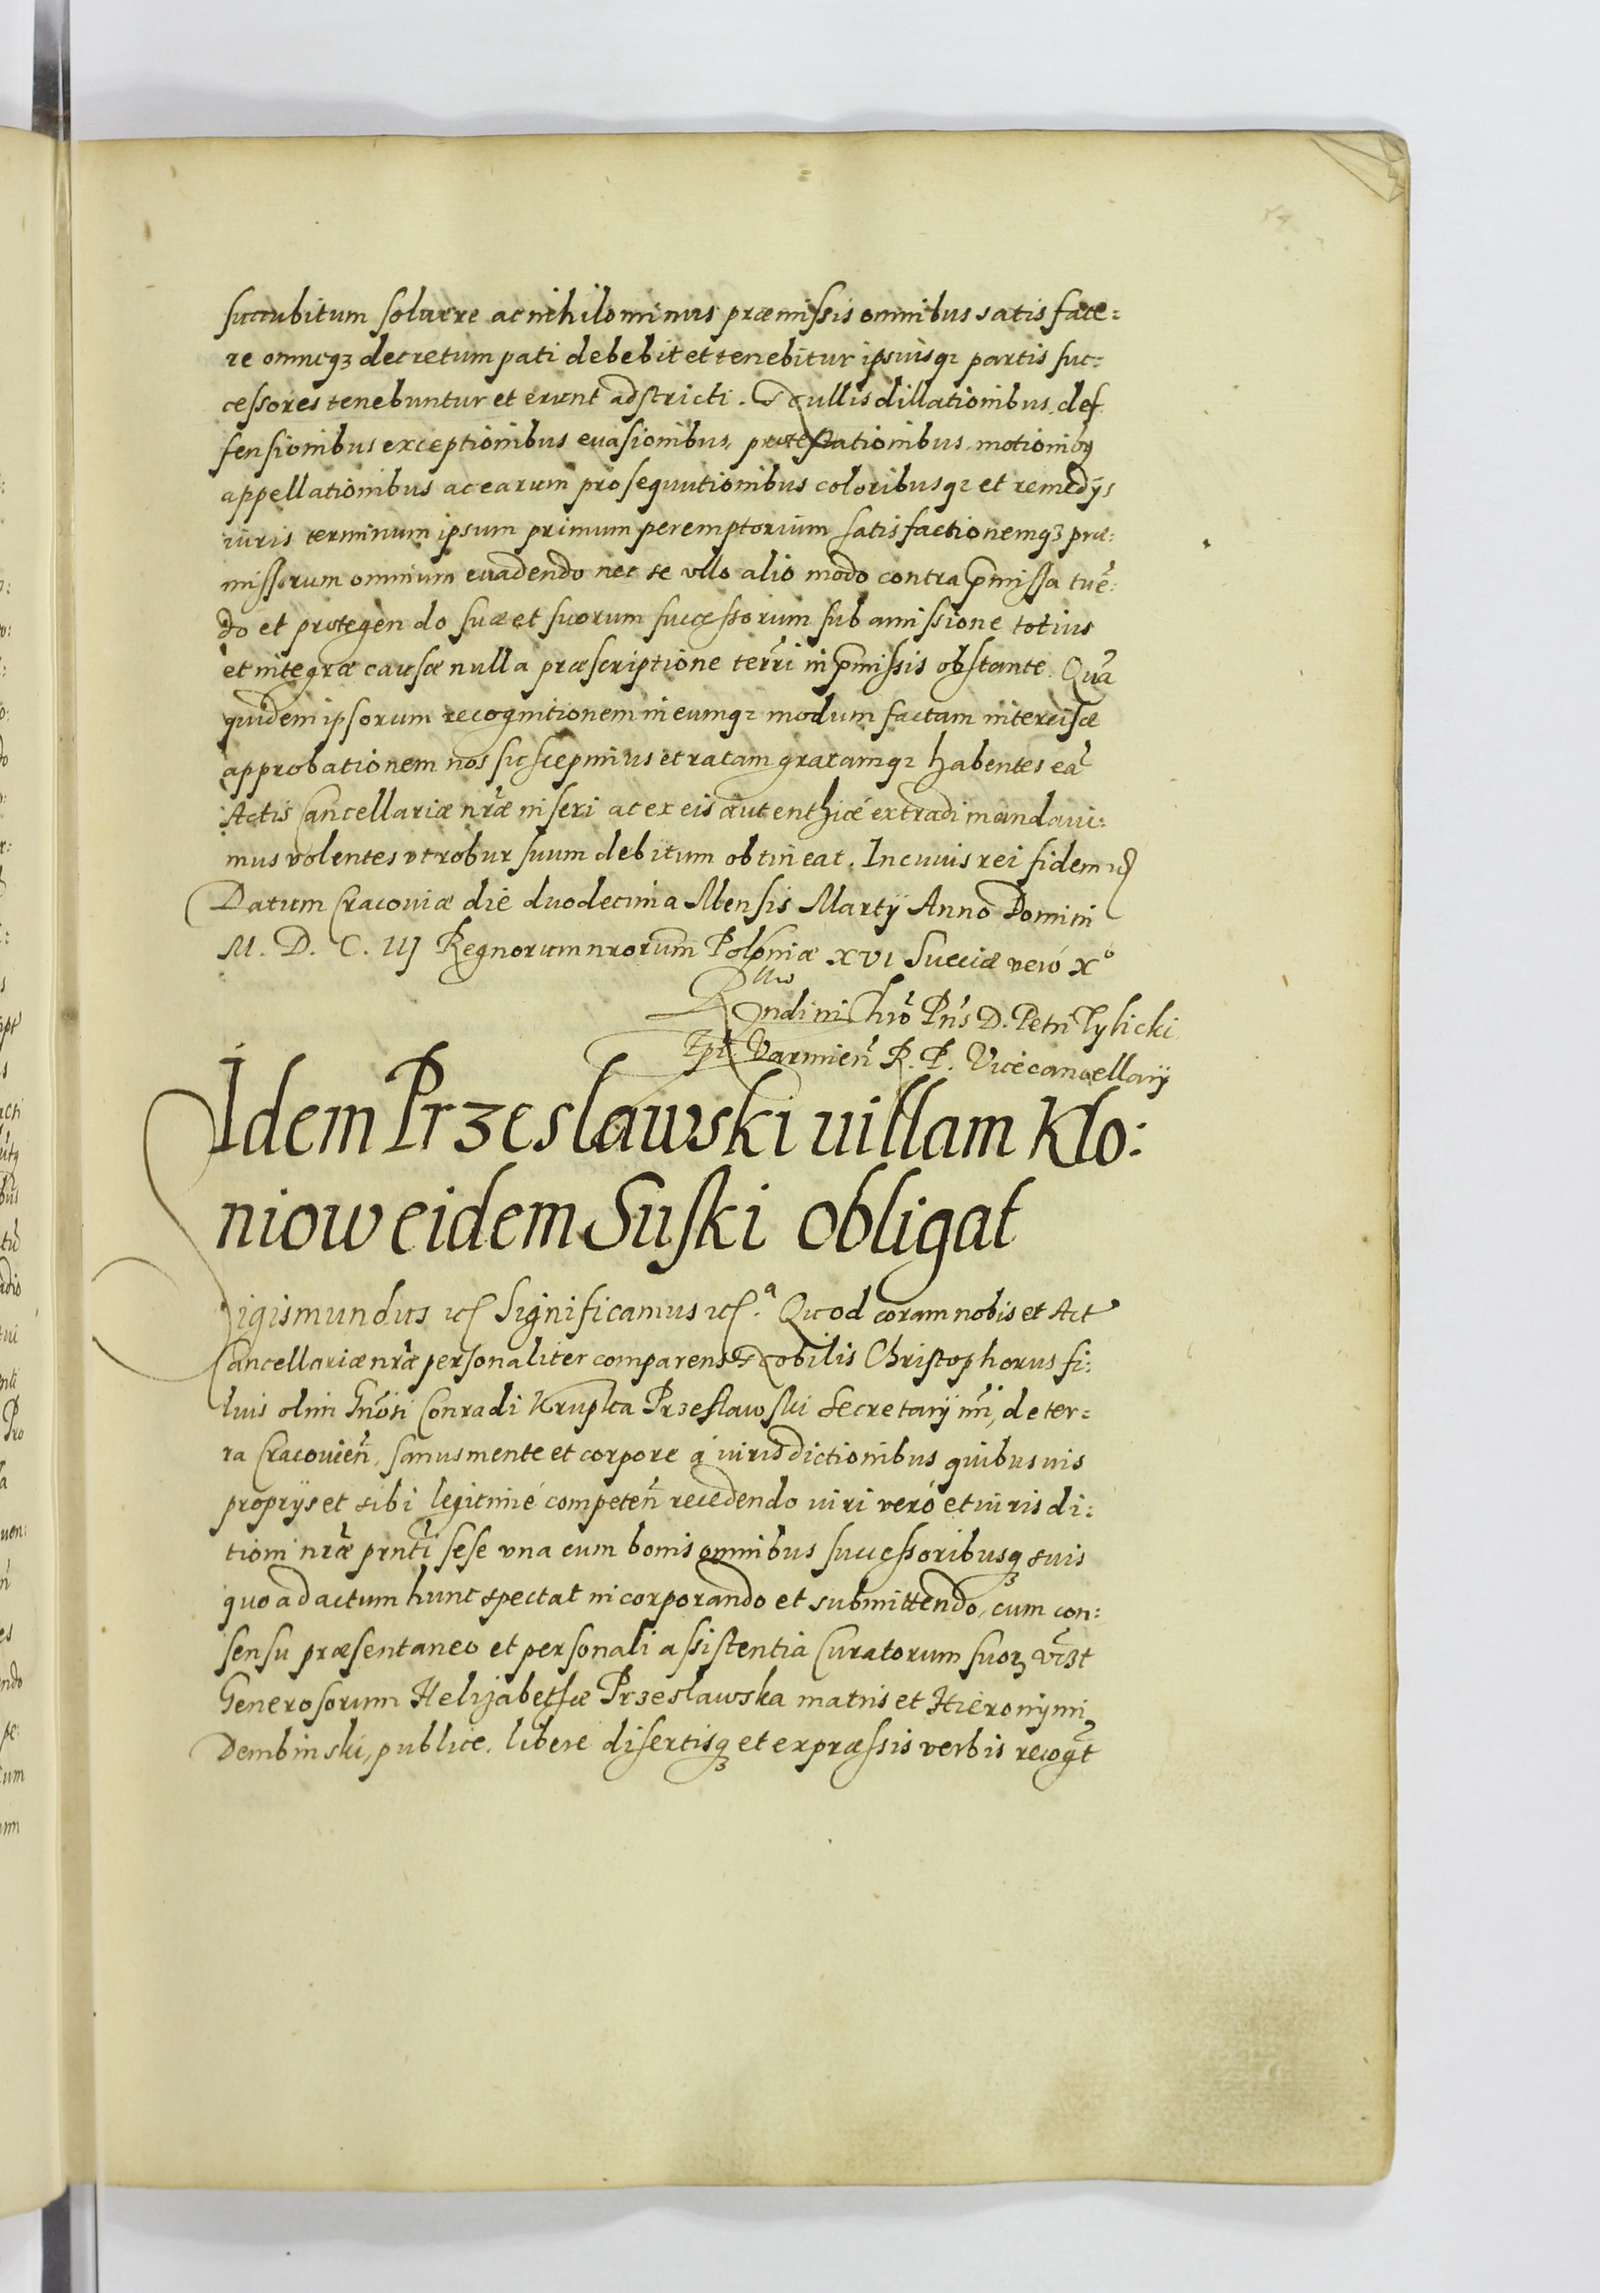 succubitum soluere ac nihilominus præmissis omnibus satis face=
re omneq3 decretum pati debebit et tenebitur ipsiusq3 partis suc=
cessores tenebuntur et erunt adstricti. Nullis dillationibus, def
fensionibus exceptionibus euasionibus, protestationibus, motionibq
appellationibus ac earum prosequutionibus coloribusq3 et remedijs
iuris terminum ipsum primum peremptorium satisfactionemq3 præ=
missorum omnium euadendo nec se vllo alio modo contra p̄missa tuē=
do et protegendo suæ et suorum successorum sub amissione totius
et integræ causæ nulla præscriptione terr̃i in p̄missis obstante. Quã
quidem ipsorum recognitionem in eumq3 modum factam intercisæ
approbationem nos suscepimus et ratam gratamq3 habentes eã
Actis Cancellariæ nr̃æ inseri ac ex eis autenthicé extradi mandaui=
mus volentes vt robur suum debitum obtineat. In cuius rei fidem
Datum Cracouiæ die duodecima Mensis Martij Anno Domini
M. D. C. IIJ Regnorum nrorum Poloniæ XVI Sueciæ veró Xº
Rndi in Chrõ Pr̃is D. Petri Tylicki
Epĩ Varmieñ R. P. Vicecancellarij
Idem Przeslawski uillam Klo=
niow eidem Suski obligat
Sigismundus Significamus Quod coram nobis et Act
Cancellariæ nr̃æ personaliter comparens Nobilis Christophorus fi=
lius olim Gñosi Conradi Krupka Przesławski Secretarij ñri, de ter=
ra Cracouieñ, sanus mente et corpore á iurisdictionibus quibusuis
proprijs et sibi legitimé competeñ recedendo iuri veró et iurisdi=
tioni nr̃æ prñti sese vna cum bonis omnibus successoribusq3 suis
quo ad actum hunc spectat incorporando et submittendo, cum con=
sensu præsentaneo et personali assistentia Curatorum suor̃ vĩ3t
Generosorum Helizabethæ Przeslawska matris et Hieronymi
Dembinski, publice, libere disertisq3 et expræssis verbis recog̃t